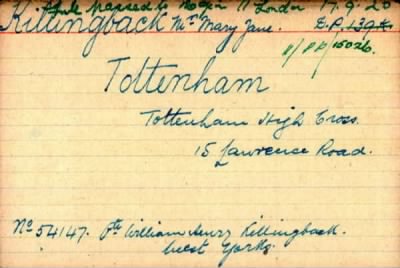 passed to Region 11 London 17.9.20
Killingback Mrs Mary Jane. D.P. 139
15026.
Tottenham
Tottenham High Cross.
15 Lawrence Road.
No 54147. Pte William Henry Killingback.
West Yorks.